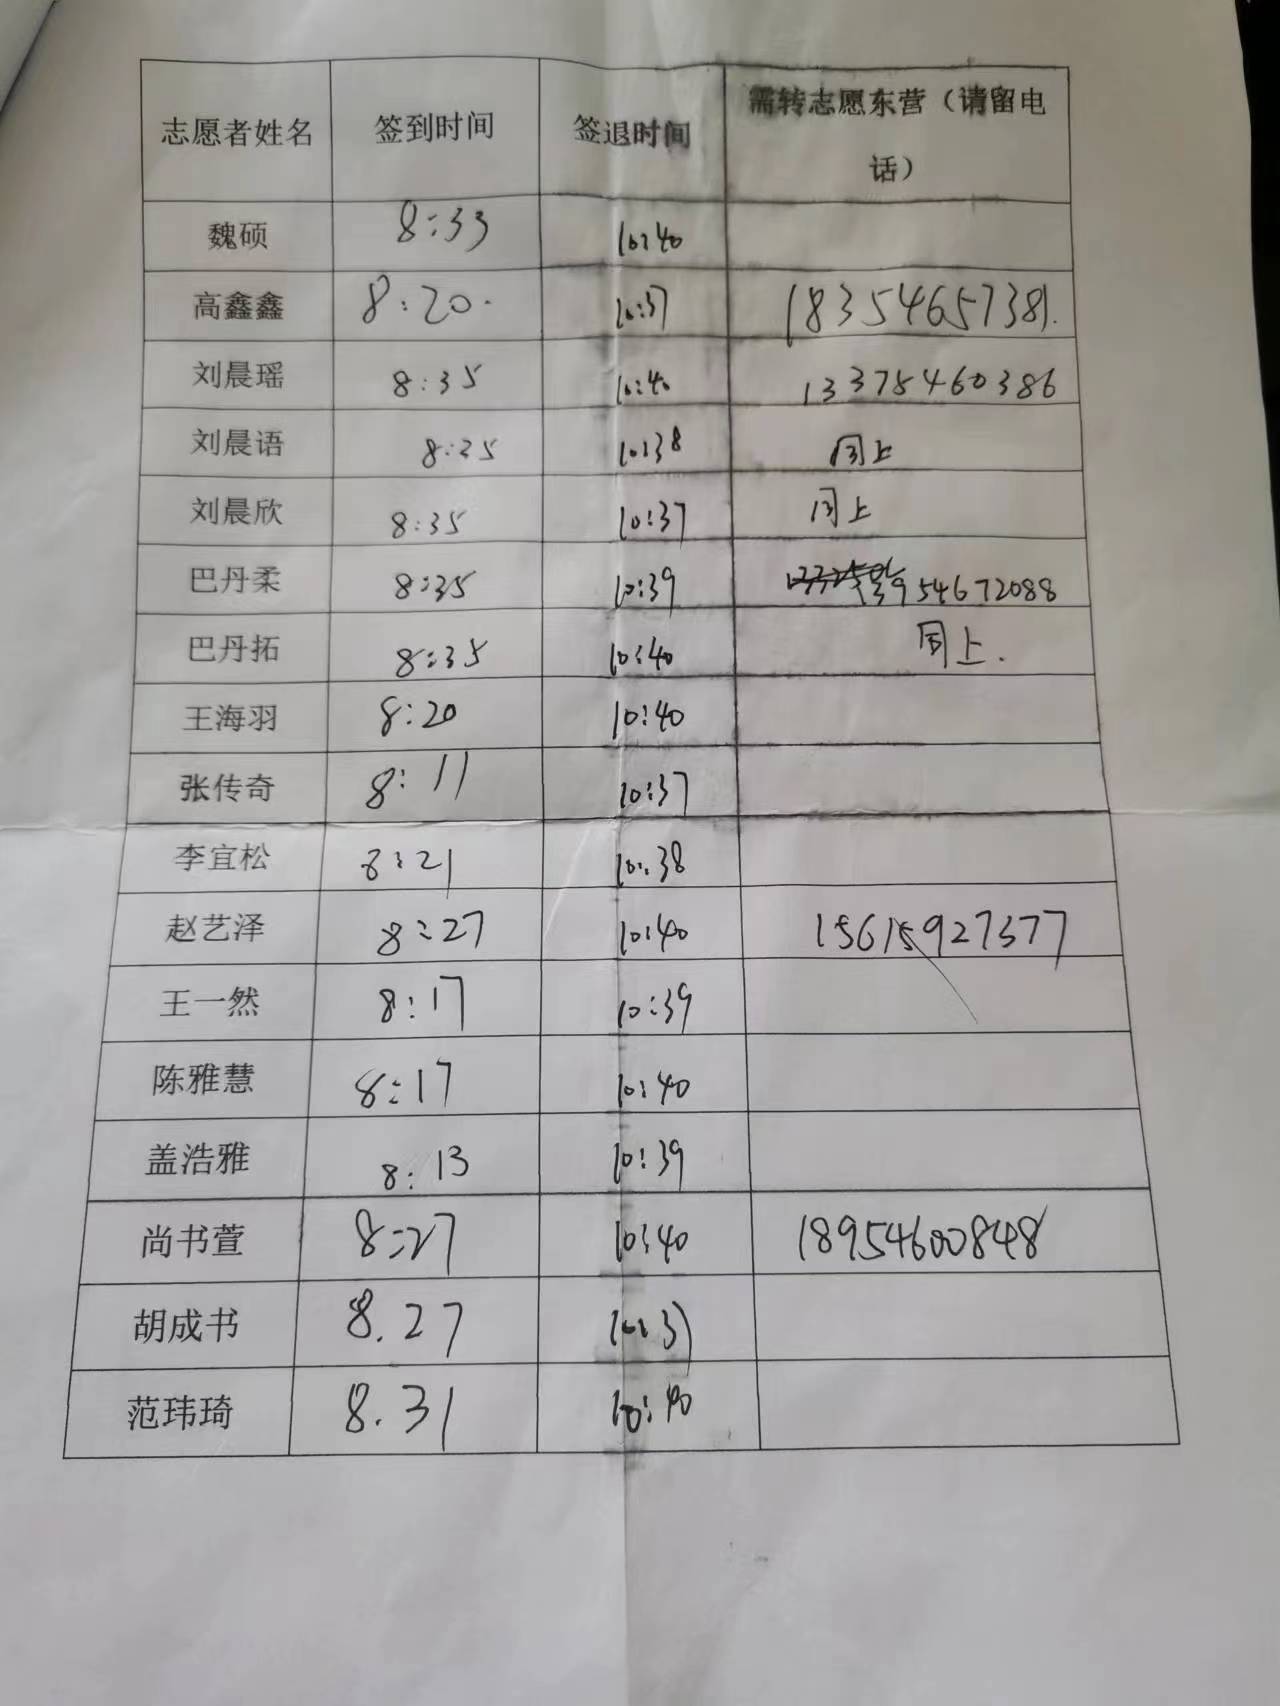 志愿者姓名 签到时间 签退时间 需转志愿东营（请留电
话）
魏硕 8:33 10:40
高鑫鑫 8:20. 10:37 18354657381.
刘晨瑶 8:35 10:40 13375460386
刘晨语 8:35 10:38 同上
刘晨欣 8:35 10:37 同上
巴丹柔 8:35 10:39 954672088
巴丹拓 8:35 10:40 同上.
王海羽 8:20 10:40
张传奇 8:11 10:37
李宜松 8:21 10:38
赵艺泽 8:27 10:40 15615927377
王一然 8:17 10:39
陈雅慧 8:17 10:40
盖浩雅 8:13 10:39
尚书萱 8:27 10:40 18954600848
胡成书 8.27 10:37
范玮琦 8.31 10:40